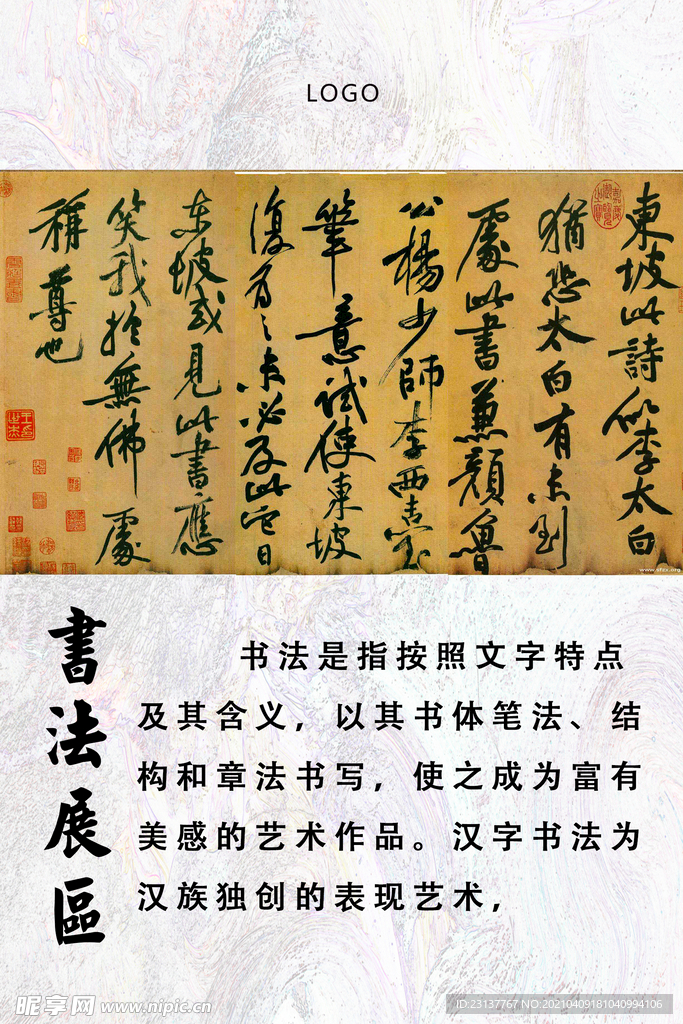 LOGO
東坡此詩似李太白
猶恐太白有未到
處此書兼顏魯
公楊少師李西臺
筆意試使東坡
復為之未必及此它日
東坡或見此書應
笑我於無佛處
稱尊也
www.nfzx.org
書法展區
书法是指按照文字特点
及其含义，以其书体笔法、结
构和章法书写，使之成为富有
美感的艺术作品。汉字书法为
汉族独创的表现艺术，
昵享网 www.nipic.cn
ID:23137767 NO:20210409181040994106